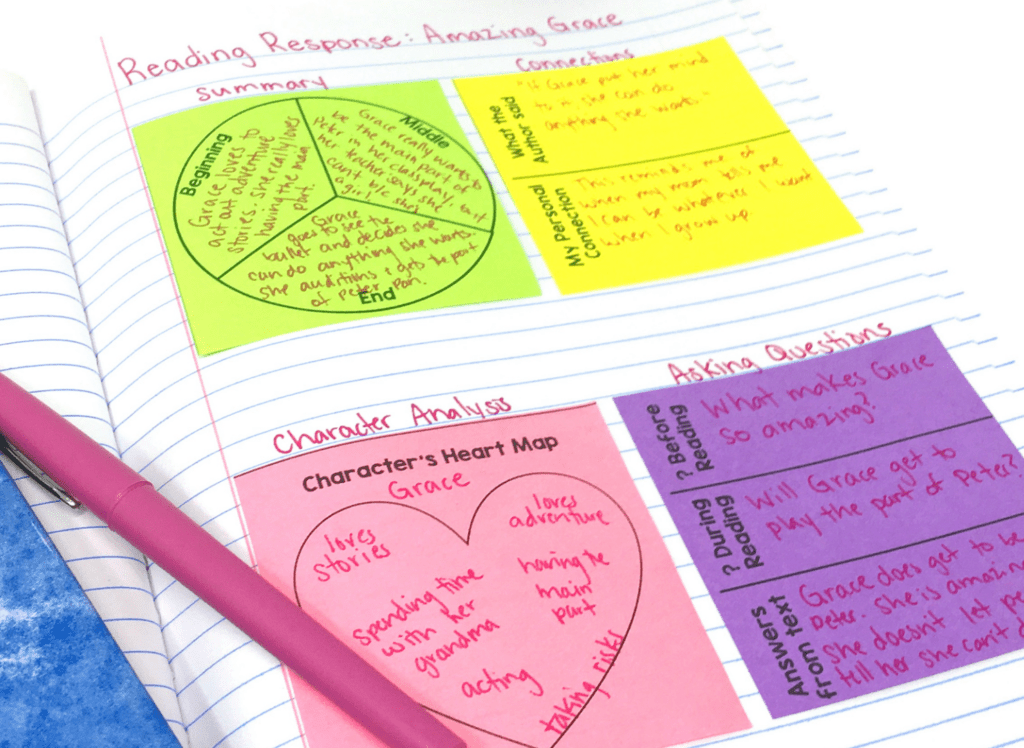 Reading Response: Amazing Grace
Summary
Beginning
Grace loves to
act out adventure
stories. she really loves
having the main
part.
Middle
Grace really wants to
be the main part of
Peter in her class play, but
her teacher says she
can't b/c she's
girl.
Grace
goes to see the
ballet and decides she
can do anything she wants.
She auditions & gets the part
of Peter Pan.
End
Connections
What the
Author said
"If Grace put her mind
to it, she can do
anything she wants."
My Personal
Connection
This reminds me of
when my mom tells me
I can be whatever I want
when I grow up
Character Analysis
Character's Heart Map
Grace
loves
stories
loves
adventure
spending time
with her
grandma
having the
main
part
acting
taking risks
Asking Questions
? Before
Reading
What makes Grace
so amazing?
? During
Reading
Will Grace get to
play the part of Peter?
Answers
from text
Grace does get to be
Peter. She is amazing
she doesn't let pe
tell her she can't d